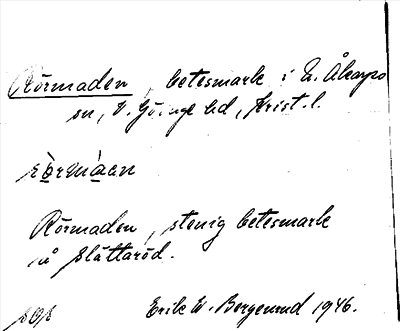 Rörmaden, betesmark i N. Åkarps
sn, V. Göinge hd, Krist. l.
rö̀rmàen
Rörmaden, stenig betesmark
på Slättaröd.
Erik W. Bergenrud 1946.